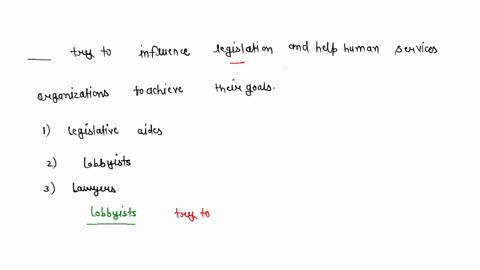 ___ try to influence legislation and help human services
organizations to achieve their goals.
1) legislative aides
2) Lobbyists
3) Lawyers
Lobbyists try to